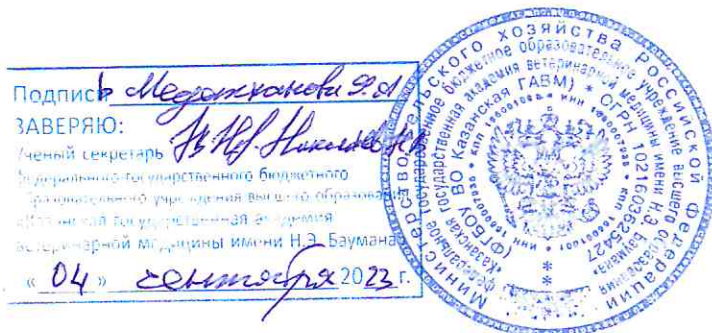 Подпись Медетханова Ф.А
ЗАВЕРЯЮ:
Ученый секретарь
федерального государственного бюджетного
образовательного учреждения высшего образования
«Казанская государственная академия
ветеринарной медицины имени Н.Э. Баумана»
« 04 » сентября 2023 г.
Министерство сельского хозяйства Российской Федерации
федеральное государственное бюджетное образовательное учреждение высшего образования
«Казанская государственная академия ветеринарной медицины имени Н.Э. Баумана»
(ФГБОУ ВО Казанская ГАВМ) * ОГРН 1021603625427